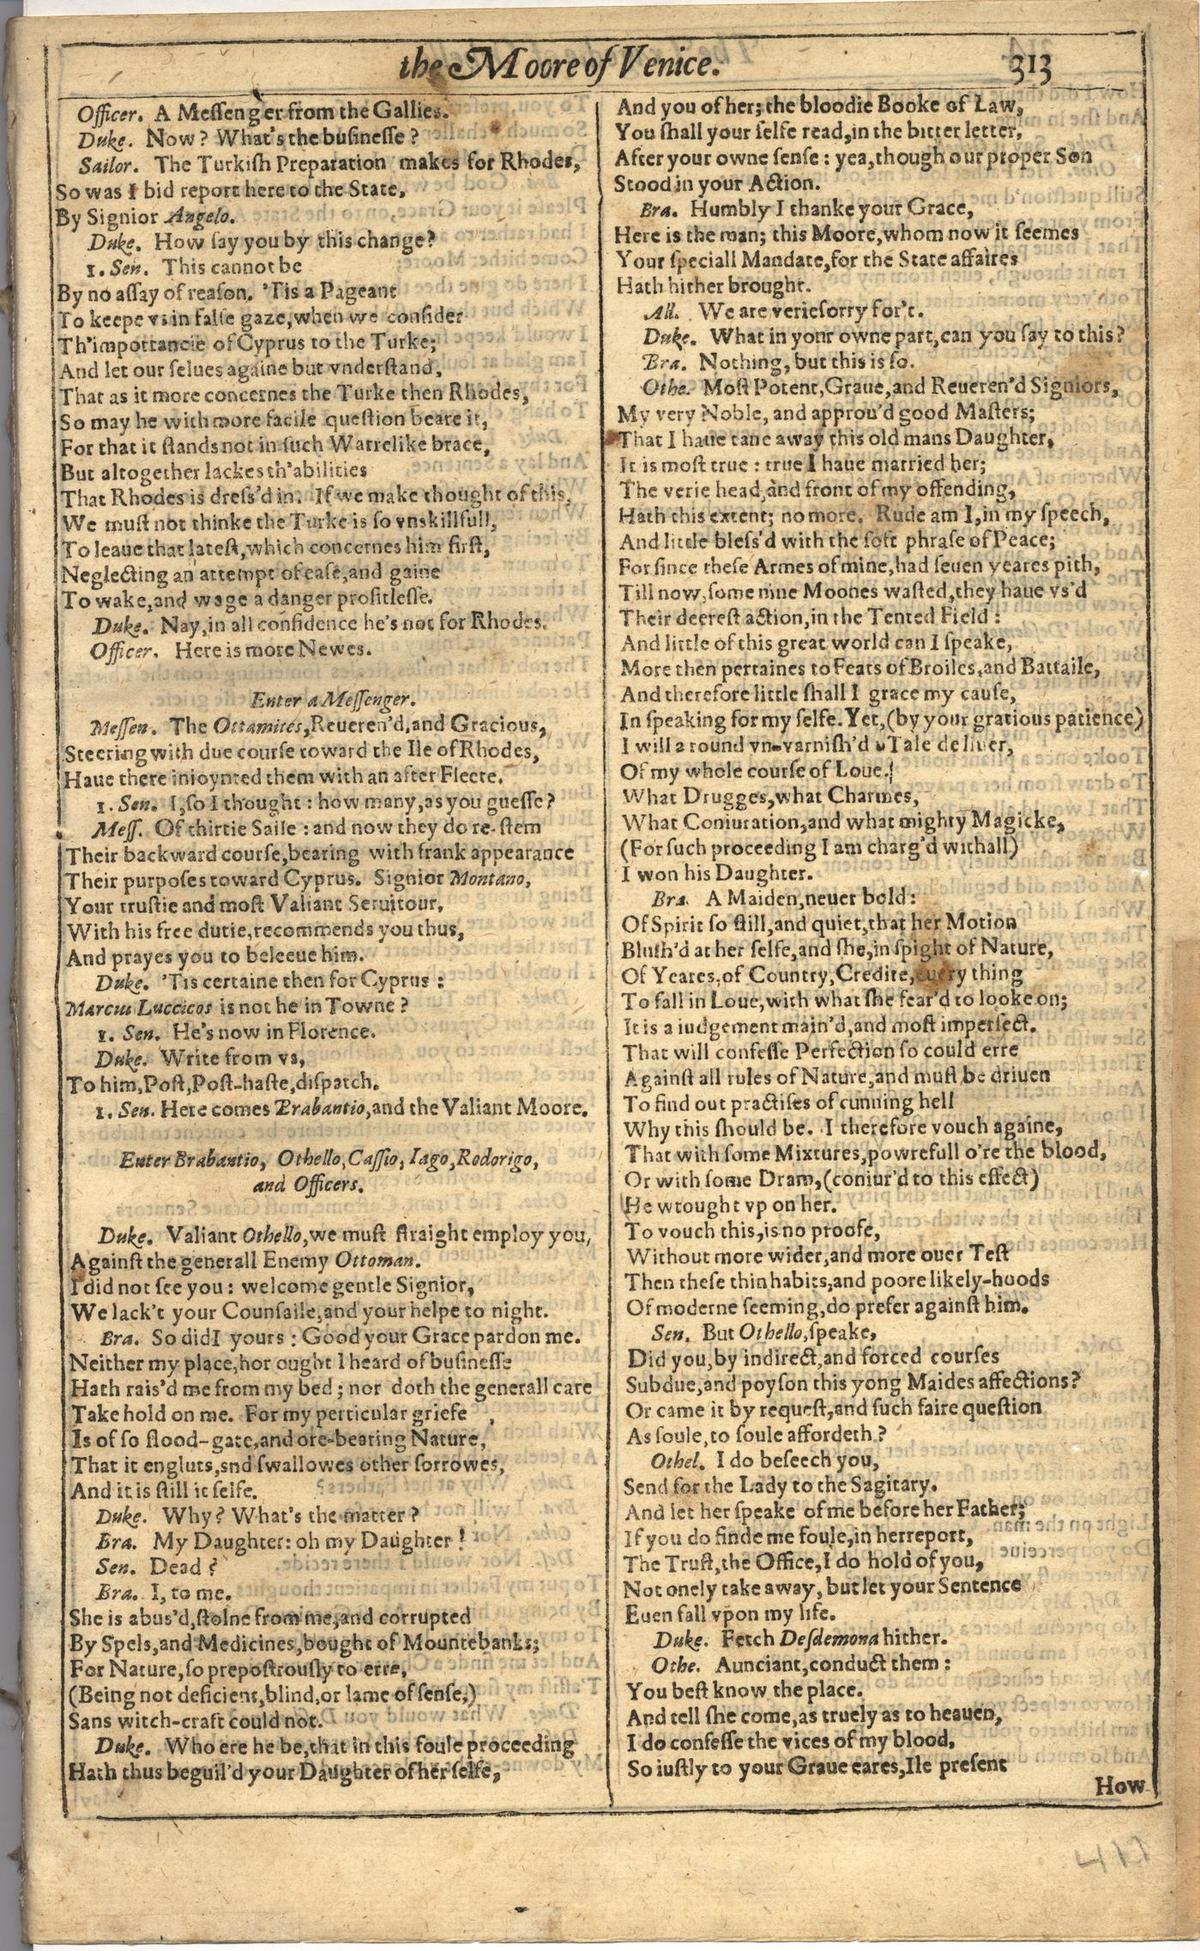 the Moore of Venice.
313
Officer. A Meſſenger from the Gallies.
Duke. Now? What's the buſineſſe?
Sailor. The Turkiſh Preparation makes for Rhodes,
So was I bid report here to the State,
By Signior Angelo.
Duke. How ſay you by this change?
1. Sen. This cannot be
By no aſſay of reaſon. 'Tis a Pageant
To keepe vs in falſe gaze, when we conſider
Th'importancie of Cyprus to the Turke;
And let our ſelues againe but vnderſtand,
That as it more concernes the Turke then Rhodes,
So may he with more facile queſtion beare it,
For that it ſtands not in ſuch Warrelike brace,
But altogether lackes th'abilities
That Rhodes is dreſs'd in. If we make thought of this,
We muſt not thinke the Turke is ſo vnskillfull,
To leaue that lateſt, which concernes him firſt,
Neglecting an attempt of eaſe, and gaine
To wake, and wage a danger profitleſſe.
Duke. Nay, in all confidence he's not for Rhodes.
Officer. Here is more Newes.
Enter a Meſſenger.
Meſſen. The Ottamites, Reueren'd, and Gracious,
Steering with due courſe toward the Ile of Rhodes,
Haue there inioynted them with an after Fleete.
1. Sen. I, ſo I thought: how many, as you gueſſe?
Meſſ. Of thirtie Saile: and now they do re-ſtem
Their backward courſe, bearing with frank appearance
Their purpoſes toward Cyprus. Signior Montano,
Your truſtie and moſt Valiant Seruitour,
With his free dutie, recommends you thus,
And prayes you to beleeue him.
Duke. 'Tis certaine then for Cyprus:
Marcus Luccicos is not he in Towne?
1. Sen. He's now in Florence.
Duke. Write from vs,
To him, Poſt, Poſt-haſte, diſpatch.
1. Sen. Here comes Brabantio, and the Valiant Moore.
Enter Brabantio, Othello, Caſſio, Iago, Rodorigo,
and Officers.
Duke. Valiant Othello, we muſt ſtraight employ you,
Againſt the generall Enemy Ottoman.
I did not ſee you: welcome gentle Signior,
We lack't your Counſaile, and your helpe to night.
Bra. So did I yours: Good your Grace pardon me.
Neither my place, hor ought I heard of buſineſſe
Hath rais'd me from my bed; nor doth the generall care
Take hold on me. For my perticular griefe
Is of ſo flood-gate, and ore-bearing Nature,
That it engluts, snd ſwallowes other ſorrowes,
And it is ſtill it ſelfe.
Duke. Why? What's the matter?
Bra. My Daughter: oh my Daughter!
Sen. Dead?
Bra. I, to me.
She is abus'd, ſtolne from me, and corrupted
By Spels, and Medicines, bought of Mountebanks;
For Nature, ſo prepoſtrouſly to erre,
(Being not deficient, blind, or lame of ſenſe,)
Sans witch-craft could not.
Duke. Who ere he be, that in this foule proceeding
Hath thus beguil'd your Daughter of her ſelfe,
And you of her; the bloodie Booke of Law,
You ſhall your ſelfe read, in the bitter letter,
After your owne ſenſe: yea, though our proper Son
Stood in your Action.
Bra. Humbly I thanke your Grace,
Here is the man; this Moore, whom now it ſeemes
Your ſpeciall Mandate, for the State affaires
Hath hither brought.
All. We are verie ſorry for't.
Duke. What in your owne part, can you ſay to this?
Bra. Nothing, but this is ſo.
Othe. Moſt Potent, Graue, and Reueren'd Signiors,
My very Noble, and approu'd good Maſters;
That I haue tane away this old mans Daughter,
It is moſt true: true I haue married her;
The verie head, and front of my offending,
Hath this extent; no more. Rude am I, in my ſpeech,
And little bleſs'd with the ſoft phraſe of Peace;
For ſince theſe Armes of mine, had ſeuen yeares pith,
Till now, ſome nine Moones waſted, they haue vs'd
Their deereſt action, in the Tented Field:
And little of this great world can I ſpeake,
More then pertaines to Feats of Broiles, and Battaile,
And therefore little ſhall I grace my cauſe,
In ſpeaking for my ſelfe. Yet, (by your gratious patience)
I will a round vn-varniſh'd u Tale deliuer,
Of my whole courſe of Loue.
What Drugges, what Charmes,
What Coniuration, and what mighty Magicke,
(For ſuch proceeding I am charg'd withall)
I won his Daughter.
Bra. A Maiden, neuer bold:
Of Spirit ſo ſtill, and quiet, that her Motion
Bluſh'd at her ſelfe, and ſhe, in ſpight of Nature,
Of Yeares, of Country, Credite, euery thing
To fall in Loue, with what ſhe fear'd to looke on;
It is a iudgement main'd, and moſt imperfect.
That will confeſſe Perfection ſo could erre
Againſt all rules of Nature, and muſt be driuen
To find out practiſes of cunning hell
Why this ſhould be. I therefore vouch againe,
That with ſome Mixtures, powrefull o're the blood,
Or with ſome Dram, (coniur'd to this effect)
He wrought vp on her.
To vouch this, is no proofe,
Without more wider, and more ouer Teſt
Then theſe thin habits, and poore likely-hoods
Of moderne ſeeming, do prefer againſt him.
Sen. But Othello, ſpeake,
Did you, by indirect, and forced courſes
Subdue, and poyſon this yong Maides affections?
Or came it by requeſt, and ſuch faire queſtion
As ſoule, to ſoule affordeth?
Othel. I do beſeech you,
Send for the Lady to the Sagitary.
And let her ſpeake of me before her Father;
If you do finde me foule, in her report,
The Truſt, the Office, I do hold of you,
Not onely take away, but let your Sentence
Euen fall vpon my life.
Duke. Fetch Deſdemona hither.
Othe. Aunciant, conduct them:
You beſt know the place.
And tell ſhe come, as truely as to heauen,
I do confeſſe the vices of my blood,
So iuſtly to your Graue eares, Ile preſent
How